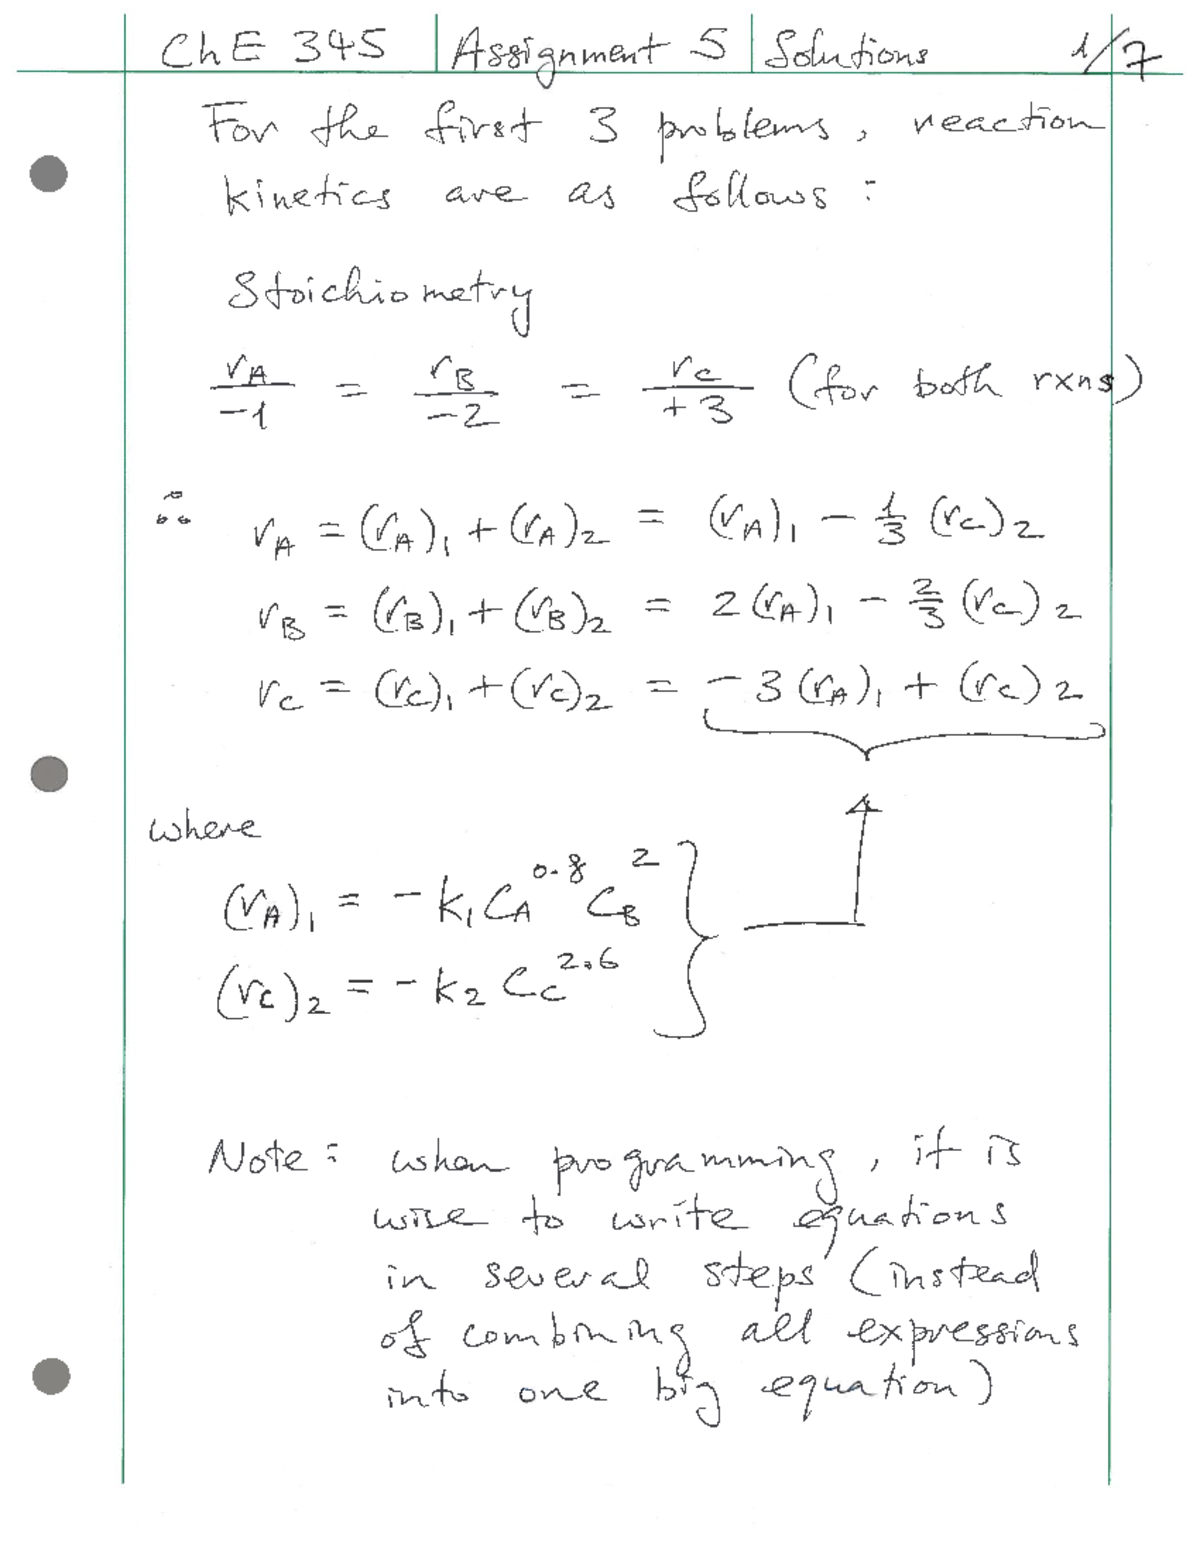 ChE 345 | Assignment 5 | Solutions 1/7
For the first 3 problems, reaction
kinetics are as follows:
Stoichiometry
r_A/-1 = r_B/-2 = r_C/+3 (for both rxns)
∴ r_A = (r_A)_1 + (r_A)_2 = (r_A)_1 - 1/3 (r_C)_2
r_B = (r_B)_1 + (r_B)_2 = 2(r_A)_1 - 2/3 (r_C)_2
r_C = (r_C)_1 + (r_C)_2 = -3(r_A)_1 + (r_C)_2
where
(r_A)_1 = -k_1 C_A^0.8 C_B^2
(r_C)_2 = -k_2 C_C^2.6
Note: when programming, it is
wise to write equations
in several steps (instead
of combining all expressions
into one big equation)